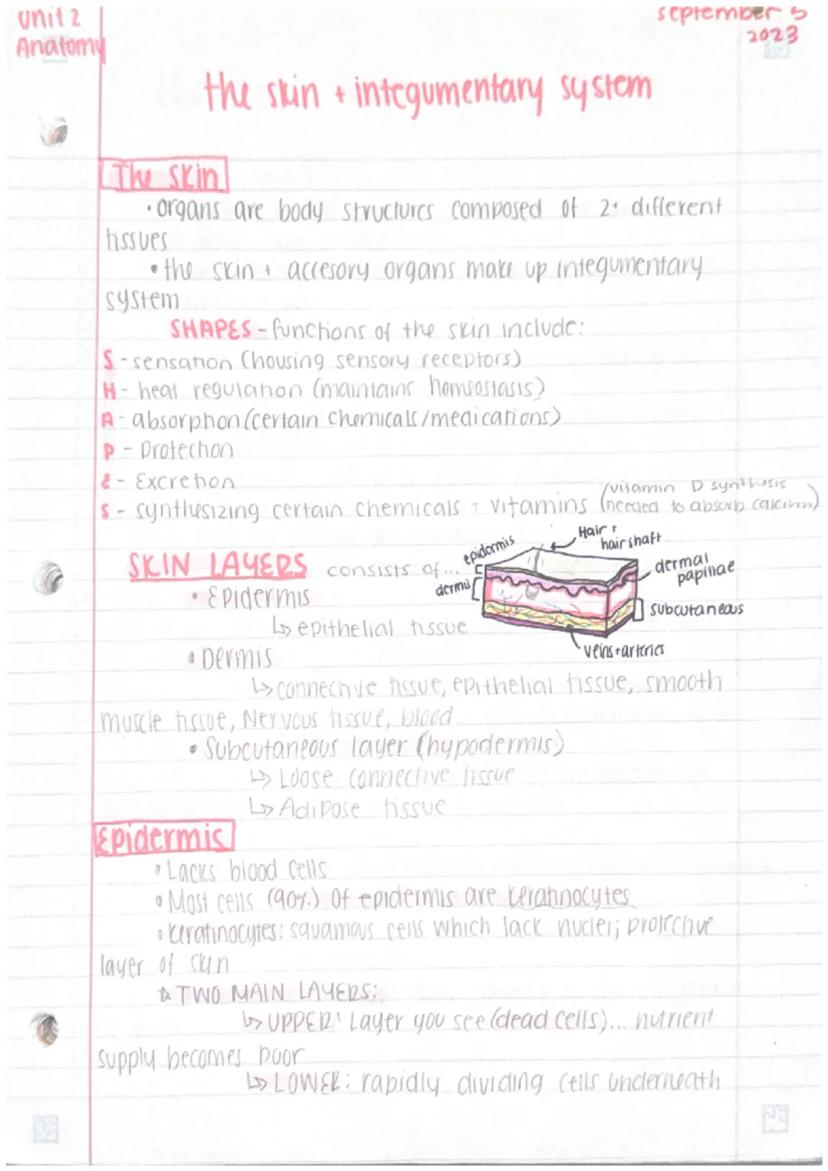 Unit 2
Anatomy
september 5
2023
the skin + integumentary system
The Skin
• organs are body structures composed of 2+ different
tissues
• the skin + accesory organs make up integumentary
system
SHAPES - functions of the skin include:
S - sensation (housing sensory receptors)
H - heat regulation (maintains homeostasis)
A - absorption (certain chemicals/medications)
P - Protection
E - Excretion
S - synthesizing certain chemicals + vitamins (vitamin D synthesis
needed to absorb calcium)
SKIN LAYERS consists of...
epidermis
dermis
Hair +
hair shaft
dermal
papillae
subcutaneous
veins + arteries
• Epidermis
↳ epithelial tissue
• Dermis
↳ connective tissue, epithelial tissue, smooth
muscle tissue, Nervous tissue, blood
• Subcutaneous layer (hypodermis)
↳ Loose connective tissue
↳ Adipose tissue
Epidermis
• Lacks blood cells
• Most cells (90%) of epidermis are keratinocytes
• keratinocytes: squamous cells which lack nuclei; protective
layer of skin
☆ TWO MAIN LAYERS:
↳ UPPER: Layer you see (dead cells)... nutrient
supply becomes poor
↳ LOWER: rapidly dividing cells underneath